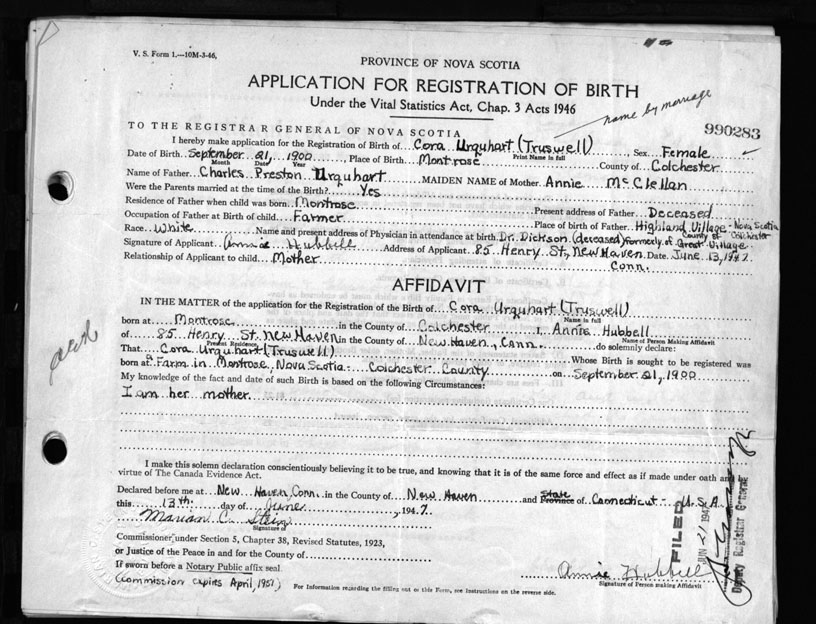 V. S. Form 1.—10M-3-46.
PROVINCE OF NOVA SCOTIA
APPLICATION FOR REGISTRATION OF BIRTH
Under the Vital Statistics Act, Chap. 3 Acts 1946
name by marriage
990283
TO THE REGISTRAR GENERAL OF NOVA SCOTIA
I hereby make application for the Registration of Birth of Cora Urquhart (Truswell), Sex Female
Print Name in full
Date of Birth September 21, 1900, Place of Birth Montrose County of Colchester
Month Date Year
Name of Father Charles Preston Urquhart MAIDEN NAME of Mother Annie McClellan
Were the Parents married at the time of the Birth? Yes
Residence of Father when child was born Montrose Present address of Father Deceased
Occupation of Father at Birth of child Farmer Place of birth of Father Highland Village - Nova Scotia
County of Colchester
Race White Name and present address of Physician in attendance at birth Dr. Dickson (deceased) formerly of Great Village
Signature of Applicant Annie Hubbell Address of Applicant 85 Henry St, New Haven Date June 13, 1947
Conn.
Relationship of Applicant to child Mother
AFFIDAVIT
IN THE MATTER of the application for the Registration of the Birth of Cora Urquhart (Truswell)
Name in full
born at Montrose in the County of Colchester I, Annie Hubbell
Name of Person Making Affidavit
of 85 Henry St. New Haven in the County of New Haven, Conn. do solemnly declare:
Present Residence
That Cora Urquhart (Truswell) Whose Birth is sought to be registered was
born at a Farm in Montrose, Nova Scotia - Colchester County on September 21, 1900
My knowledge of the fact and date of such Birth is based on the following Circumstances:
I am her mother.
I make this solemn declaration conscientiously believing it to be true, and knowing that it is of the same force and effect as if made under oath and by
virtue of The Canada Evidence Act.
Declared before me at New Haven, Conn. in the County of New Haven and State Province of Connecticut - U.S.A.
this 13th day of June, 1947
Marian C. Stein
Signature of
Commissioner, under Section 5, Chapter 38, Revised Statutes, 1923,
or Justice of the Peace in and for the County of
If sworn before a Notary Public affix seal
(Commission expires April, 1951)
Annie Hubbell
Signature of Person making Affidavit
For Information regarding the filling out of this Form, see Instructions on the reverse side.
FILED
JUN 21 194
Deputy Registrar General